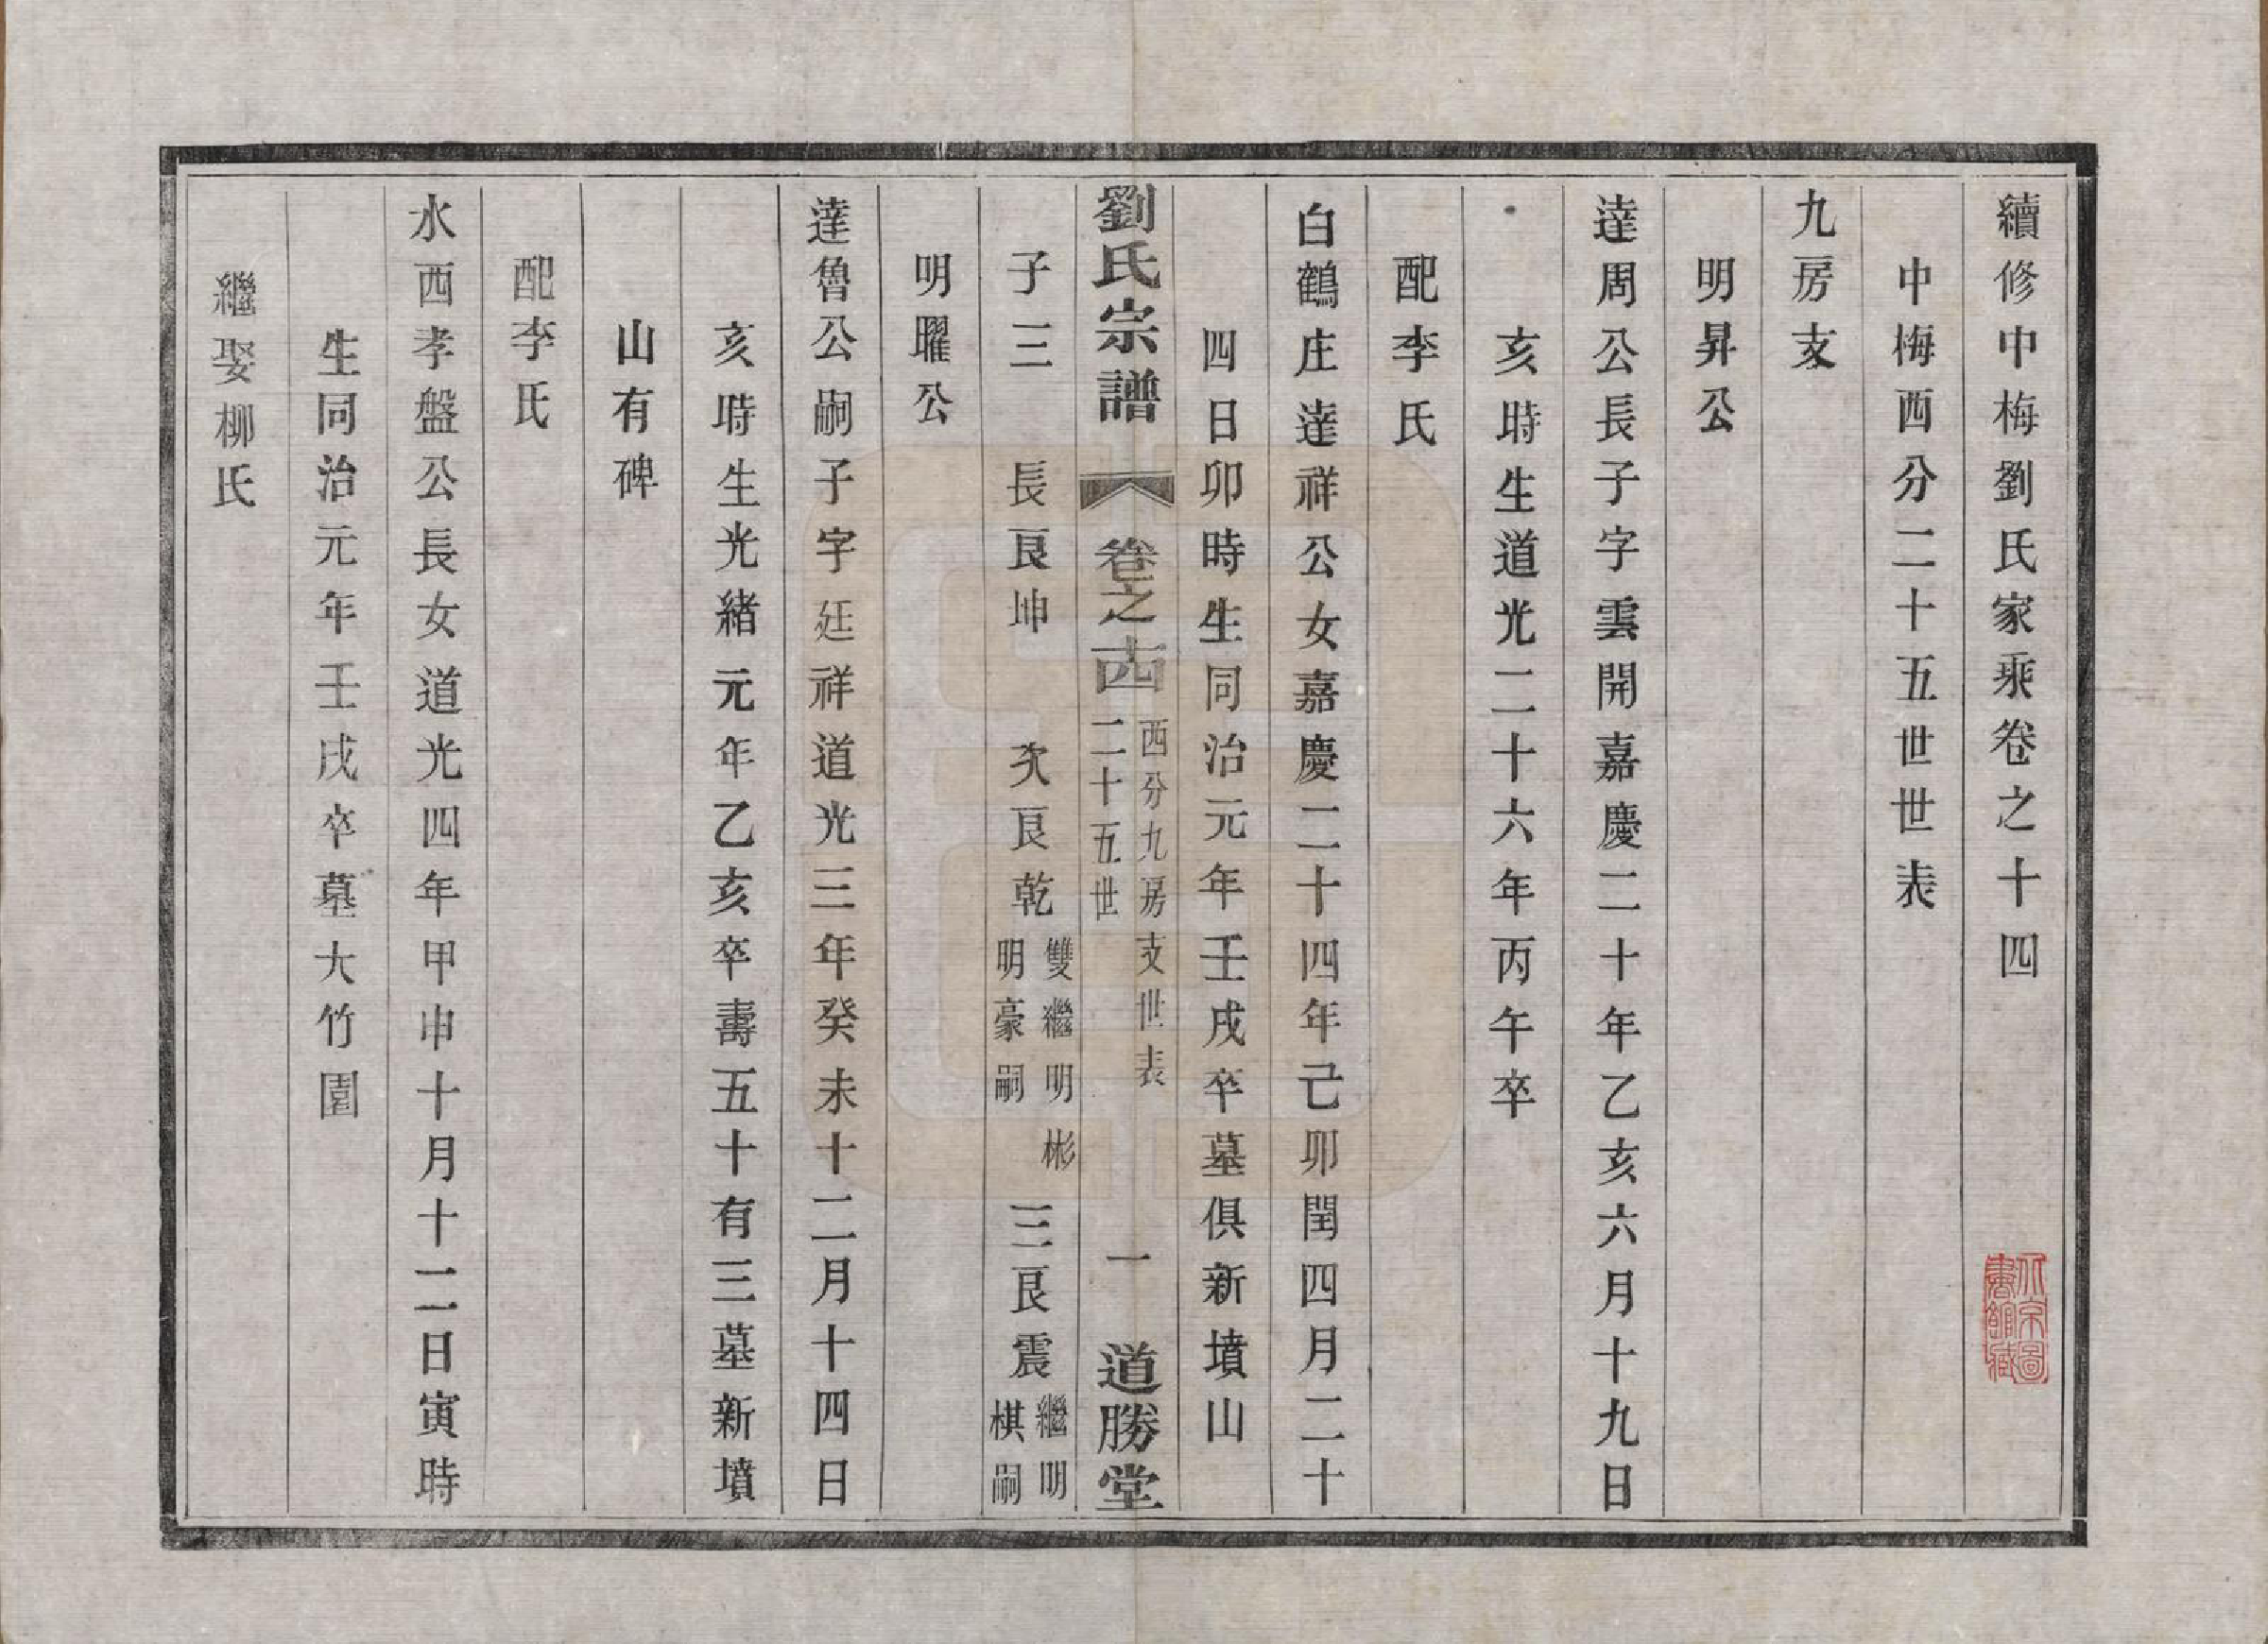 續修中梅劉氏家乘卷之十四
中梅西分二十五世世表
九房支
明昇公
達周公長子字雲開嘉慶二十年乙亥六月十九日
亥時生道光二十六年丙午卒
配李氏
白鶴庄達祥公女嘉慶二十四年己卯閏四月二十
四日卯時生同治元年壬戌卒墓俱新墳山
劉氏宗譜
卷之十四
西分九房支世表
二十五世
一
道勝堂
子三 長艮坤 次艮乾 雙繼明彬
明豪嗣 三艮震 繼明
棋嗣
明曜公
達魯公嗣子字廷祥道光三年癸未十二月十四日
亥時生光緒元年乙亥卒壽五十有三墓新墳
山有碑
配李氏
水西孝盤公長女道光四年甲申十月十二日寅時
生同治元年壬戌卒墓大竹園
繼娶柳氏